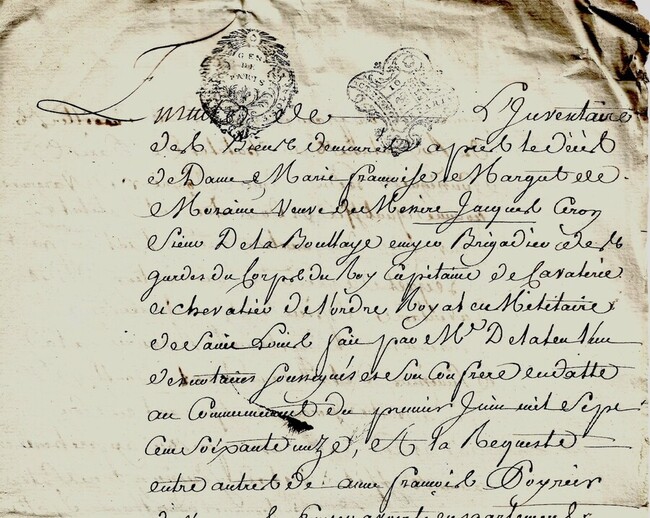 GEN
DE
PARIS
L'Inventaire
des Biens demeurés après le décès
de Dame Marie françoise Margut de
Moraine Veuve de Messire Jacques
Sieur De la Boullaye Brigadier des
gardes du Corps du Roy Capitaine de Cavalerie
et chevalier de l'ordre Royal et Militaire
de Saint Louis fait par Me. De la l'un
des notaires soussignés et son Confrere en datte
au Commencement du premier Juin mil Sept
Cent Soixante onze, Et a la Requeste
entre autres de françois